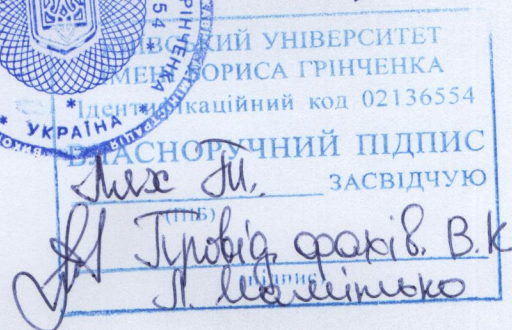 КИЇВСЬКИЙ УНІВЕРСИТЕТ
ІМЕНІ БОРИСА ГРІНЧЕНКА
Ідентифікаційний код 02136554
ВЛАСНОРУЧНИЙ ПІДПИС
Лях Т. ЗАСВІДЧУЮ
(ПІБ)
Провід. фахів. В.К
підпис
УКРАЇНА
ГРІНЧЕНКА